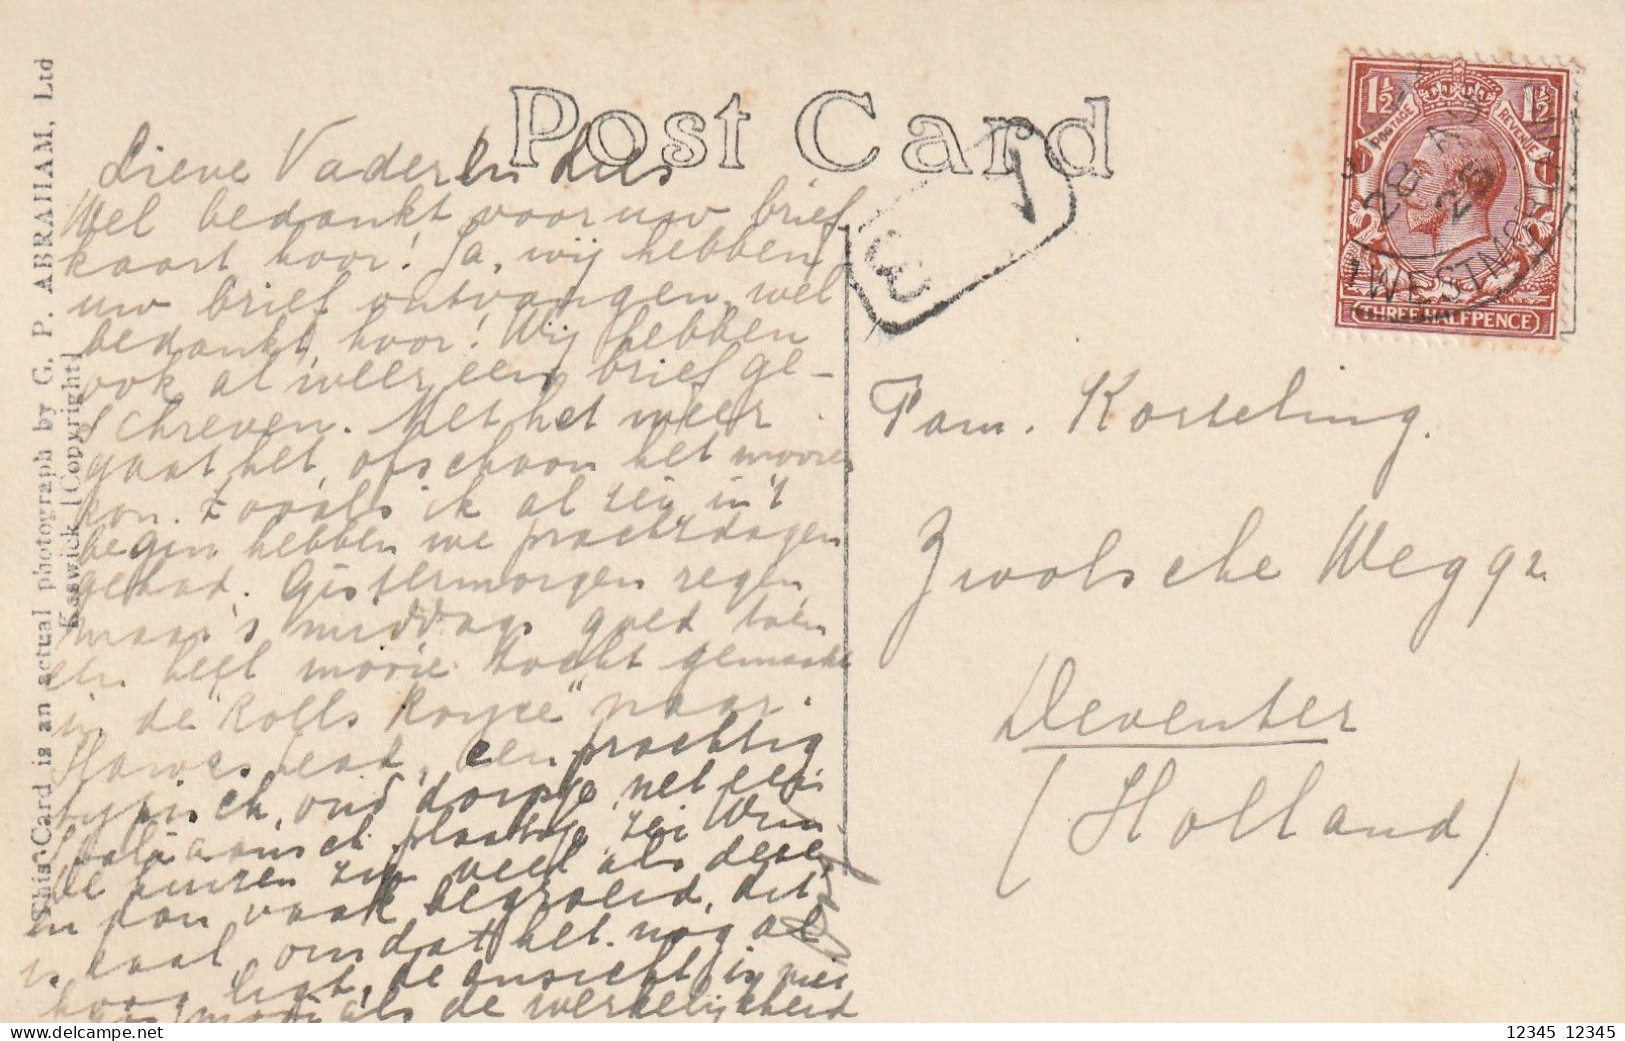 Post Card
This Card is an actual photograph by G. P. ABRAHAM, Ltd
Keswick [Copyright]
Lieve Vader en Lies
Wel bedankt voor uw brief
kaart hoor! Ja, wij hebben
uw brief ontvangen, wel
bedankt, hoor! Wij hebben
ook al weer een brief ge-
schreven. Met het weer
gaat het, ofschoon het mooier
kon. Zooals ik al zei, in 't
begin hebben we prachtdagen
gehad. Gistermorgen regen,
maar 's middags goed toen
een heel mooie tocht gemaakt
in de "Rolls Royce" naar
Hawes, een prachtig
typisch, oud dorpje, net een
Italiaansch plaatsje, zei Wim
De huizen zijn veel als deze
en dan vaak begroeid, dit
is kaal, omdat het nog al
hoog ligt, de ansicht is niet
zoo mooi als de werkelijkheid
1½ 1½
POSTAGE REVENUE
THREE HALFPENCE
28 AU 25
WESTMORLAND
Fam. Korteling.
Zwolsche Weg 92.
Deventer
(Holland)
12345 12345